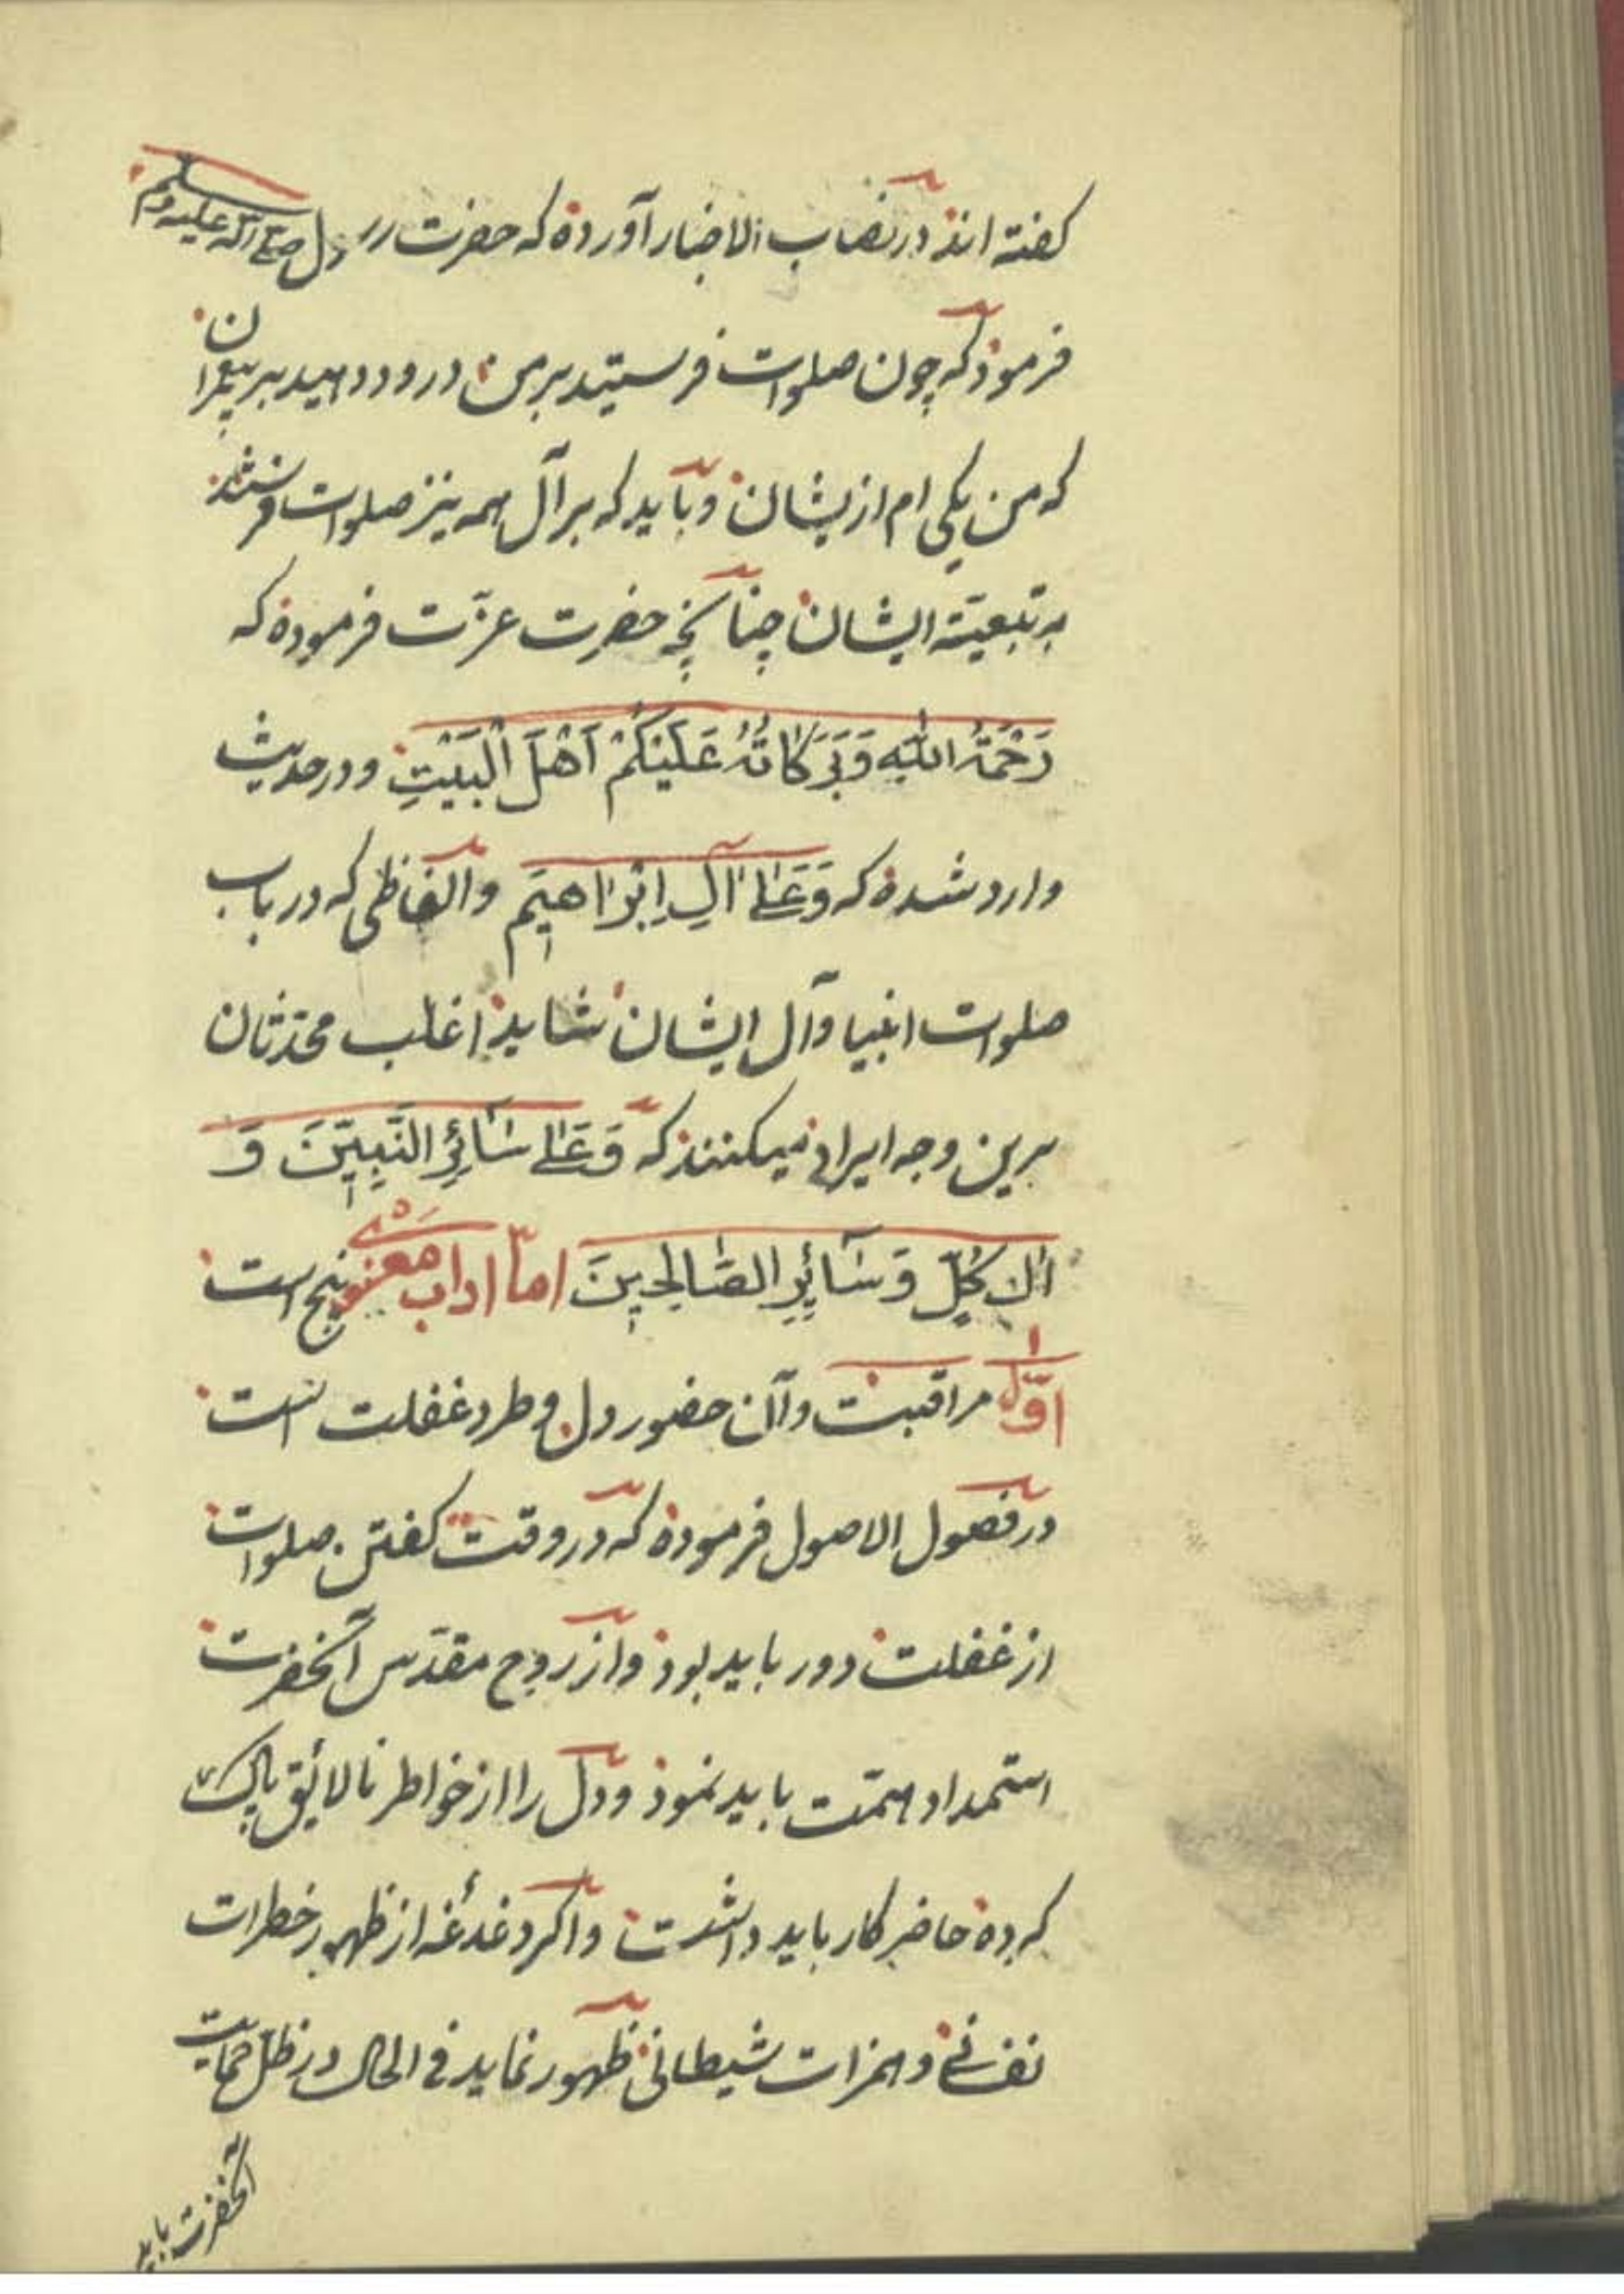 کفته اند در نصاب الاخبار آورده که حضرت رسول صلی الله علیه وسلم
فرمود که چون صلوات فرستید بر من درود دهید بر پیغمبران
که من یکی ام از یشان وباید که بر آل همه نیز صلوات فرستند
به تبعیّته ایشان چنانچه حضرت عزّت فرموده که
رَحْمَةُ اللّٰهِ وَبَرَكَاتُهُ عَلَيْكُمْ اَهْلَ الْبَيْتِ ودر حدیث
وارد شده که وَعَلٰى اٰلِ اِبْرَاهِيْمَ والفاظی که در باب
صلوات انبیا وآل ایشان شاید اغلب محدّثان
برین وجه ایراد میکنند که وَعَلٰى سَآئِرِ النَّبِيِّيْنَ وَ
اٰلِ كُلٍّ وَسَآئِرِ الصَّالِحِيْنَ امّا اداب معنوی پنج است
اوّل مراقبت وآن حضور دل وطرد غفلت است
در فصول الاصول فرموده که در وقت کفتن صلوات
از غفلت دور باید بود واز روح مقدّس آنحضرت
استمداد همّت باید نمود ودل را از خواطر نالائق پاک
کرده حاضر کار باید داشت واکر دغدغه از ظهور خطرات
نفسانی وهمزات شیطانی ظهور نماید فی الحال در ظلّ حمایت
آنحضرت باید